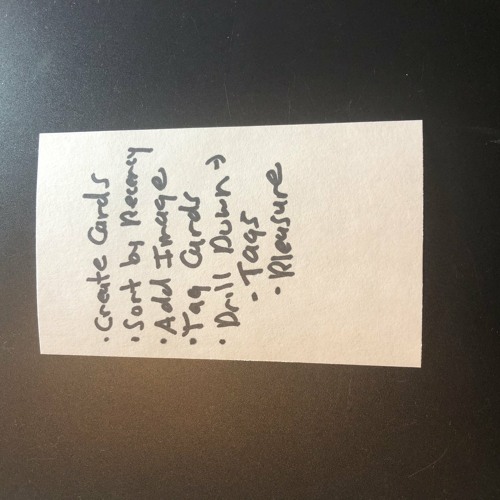 · Create Cards
· Sort by Recency
· Add Image
· Tag Cards
· Drill Down →
- Tags
· Pleasure